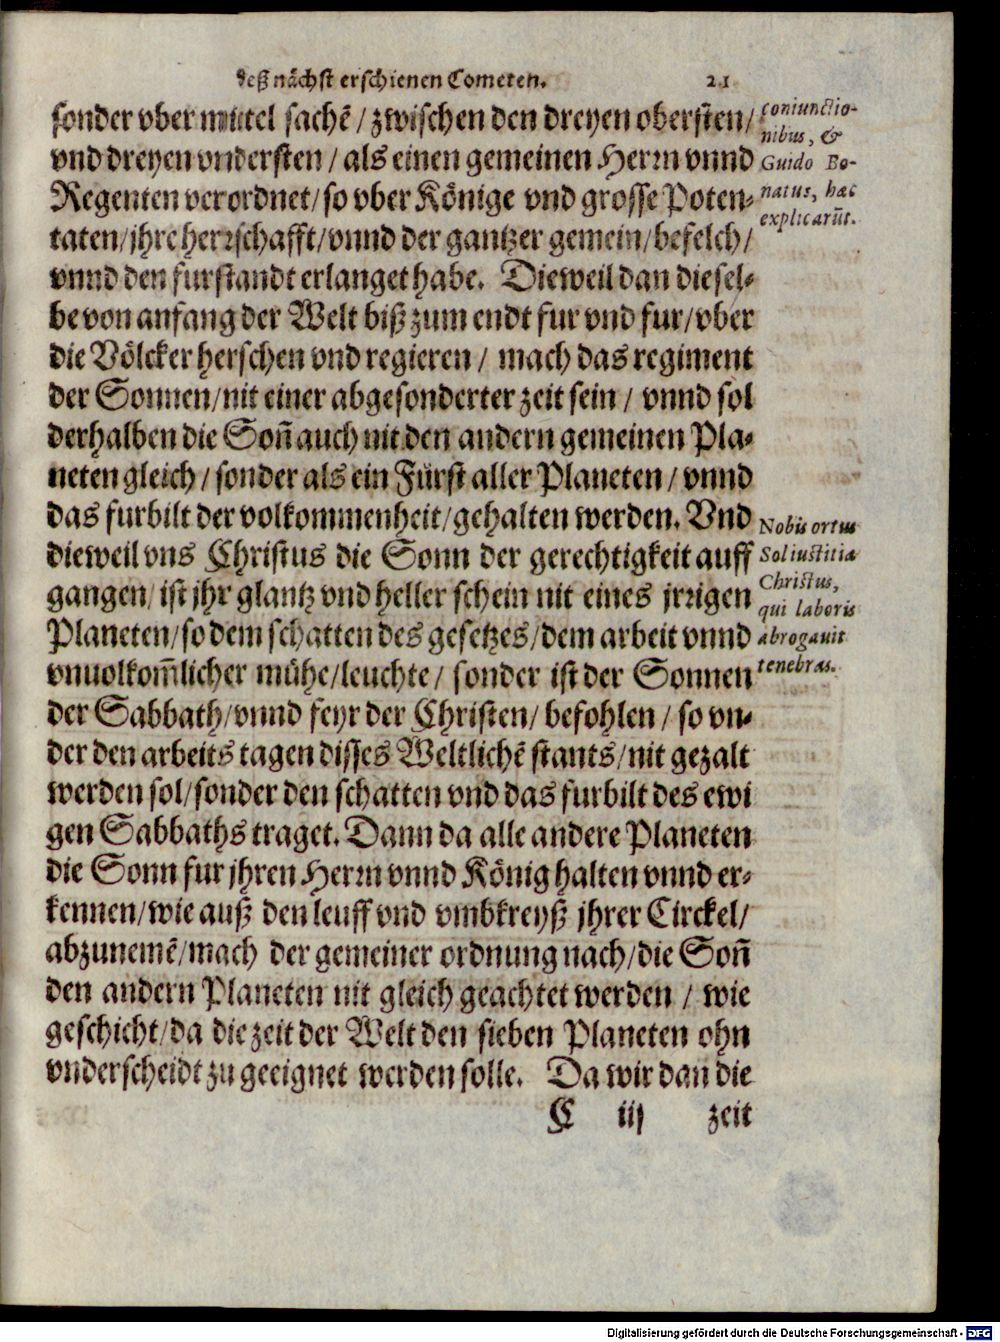 deß nächst erschienen Cometen. 21
sonder vber mittel sachē / zwischen den dreyen obersten/
vnd dreyen vndersten / als einen gemeinen Herrn vnnd
Regenten verordnet/ so vber Könige vnd grosse Poten-
taten/ jhre herrschafft/ vnnd der gantzer gemein/ befelch/
vnnd den furstandt erlanget habe. Dieweil dan diesel-
be von anfang der Welt biß zum endt fur vnd fur/ vber
die Völcker herschen vnd regieren / mach das regiment
der Sonnen/ nit einer abgesonderter zeit sein / vnnd sol
derhalben die Soñ auch nit den andern gemeinen Pla-
neten gleich / sonder als ein Fürst aller Planeten / vnnd
das furbilt der volkommenheit/ gehalten werden. Vnd
dieweil vns Christus die Sonn der gerechtigkeit auff
gangen/ ist jhr glantz vnd heller schein nit eines jrrigen
Planeten/ so dem schatten des gesetzes/ dem arbeit vnnd
vnuolkom̃licher mühe/ leuchte/ sonder ist der Sonnen
der Sabbath/ vnnd feyr der Christen/ befohlen / so vn-
der den arbeits tagen disses Weltlichē stants/ nit gezalt
werden sol/ sonder den schatten vnd das furbilt des ewi
gen Sabbaths traget. Dann da alle andere Planeten
die Sonn fur jhren Herrn vnnd König halten vnnd er-
kennen/ wie auß den leuff vnd vmbkreyß jhrer Circkel/
abzunemē/ mach der gemeiner ordnung nach/ die Soñ
den andern Planeten nit gleich geachtet werden / wie
geschicht/ da die zeit der Welt den sieben Planeten ohn
vnderscheidt zu geeignet werden solle. Da wir dan die
C iij zeit
coniunctio-
nibus, &
Guido Bo-
natus, hæc
explicarũt.
Nobis ortus
Sol iustitiæ
Christus,
qui laboris
abrogauit
tenebras.
Digitalisierung gefördert durch die Deutsche Forschungsgemeinschaft - DFG